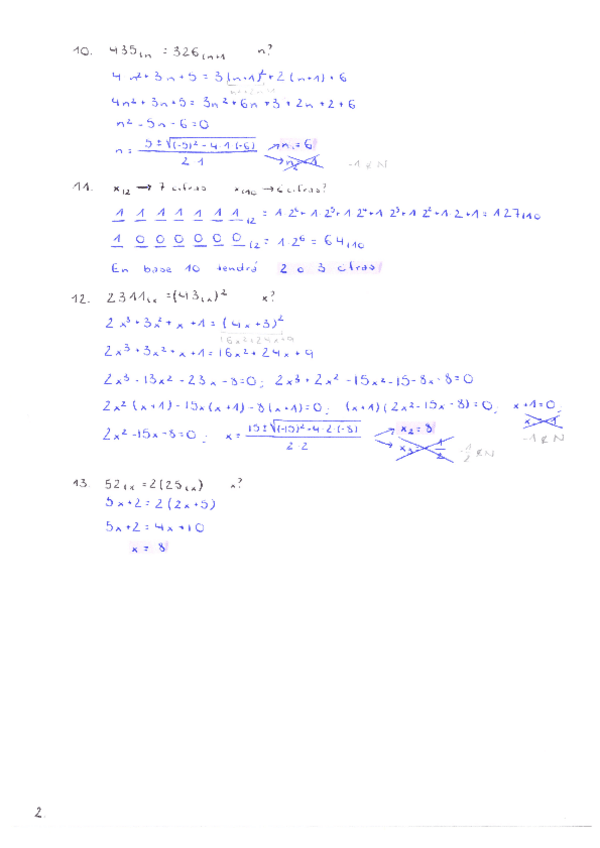 10. 435₍ₙ = 326₍ₙ₊₁ n?
4n² + 3n + 5 = 3(n+1)² + 2(n+1) + 6
n²+2n+1
4n² + 3n + 5 = 3n² + 6n + 3 + 2n + 2 + 6
n² - 5n - 6 = 0
n = (5 ± √((-5)² - 4·1·(-6))) / (2·1) n₁ = 6
n₂ = -1 -1 ∉ N
11. x₍₂ → 7 cifras x₍₁₀ → ¿cifras?
1 1 1 1 1 1 1₍₂ = 1·2⁶ + 1·2⁵ + 1·2⁴ + 1·2³ + 1·2² + 1·2 + 1 = 127₍₁₀
1 0 0 0 0 0 0₍₂ = 1·2⁶ = 64₍₁₀
En base 10 tendrá 2 o 3 cifras
12. 2311₍ₓ = (43₍ₓ)² x?
2x³ + 3x² + x + 1 = (4x+3)²
16x²+24x+9
2x³ + 3x² + x + 1 = 16x² + 24x + 9
2x³ - 13x² - 23x - 8 = 0; 2x³ + 2x² - 15x² - 15 - 8x - 8 = 0
2x²(x+1) - 15x(x+1) - 8(x+1) = 0; (x+1)(2x² - 15x - 8) = 0; x+1 = 0;
x₁ = -1
-1 ∉ N
2x² - 15x - 8 = 0; x = (15 ± √((-15)² - 4·2·(-8))) / (2·2) x₂ = 8
x₃ = -1/2 -1/2 ∉ N
13. 52₍ₓ = 2(25₍ₓ) x?
5x + 2 = 2(2x+5)
5x + 2 = 4x + 10
x = 8
2.